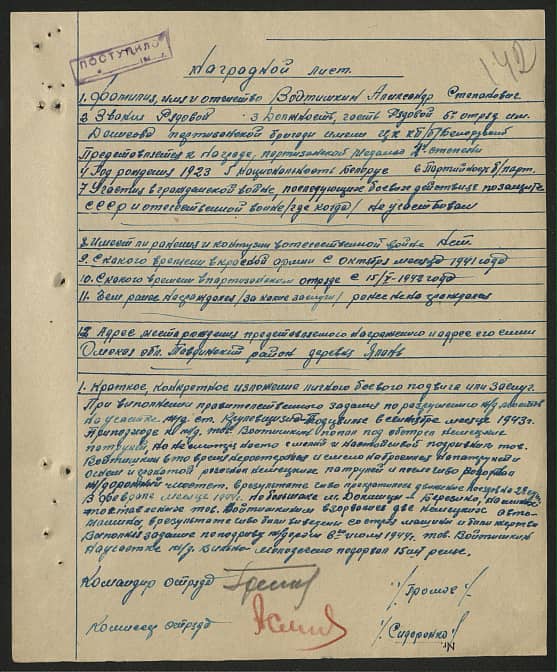 ПОСТУПИЛО
142
Наградной лист.
1. Фамилия, имя и отчество Войтишкин Александр Степанович
2 Звания Рядовой 3 Должность, часть Рядовой 6го отряд им.
партизанской бригады имени ЦК КП/б/Белоруссии
Представляется к Награде, партизанской медали 2й степени
4 Год рождения 1923 5 Национальность Белорус 6 Партийность б/парт.
7 Участия в гражданской войне, последующие боевые действия по защите
СССР и отечественной войне/где когда/ не участвовал
8. Имеет ли ранения и контузии в отечественной войне нет
9. С какого времени в красной армии с октября месяца 1941 года
10. С какого времени в партизанском отряде с 15/X-1942 года
11. Чем ранее награждался/за какие заслуги/ ранее не награждался
12. Адрес места рождения представляемого к награжению и адрес его семьи
Омская обл. район деревня
1. Краткое, конкретное изложения личного боевого подвига или заслуг.
При выполнении правительственного задания по разрушению ж/д мостов
на участке ж/д. ст. месяце 1943г.
При подходе к ж/д. тов. Войтишкин попал под обстрел немецких
патрулей, но не смотря на это смело и настойчиво тов.
Войтишкин в то время не растерялся и смело набросился на патрулей и
огнем и гранатой разогнал немецких патрулей и после чего взорвал
ж/дорожный мост, в результате чего прекратилось движение поездов на 28
В феврале месяце 1944г. на большаке м. Докшицы - Березино, на мине
поставленное тов. Войтишкиным взорвались две немецких авто-
машины, в результате чего были выведены со строя машины и были жертвы
Выполняя задание по подрыву ж/дороги в июля 1944г. тов. Войтишкин
На участке ж/д. Вилейко - Молодечно подорвал 15 шт рельс.
Командир отряда /Громов/
Комиссар отряда /Сидоренко/